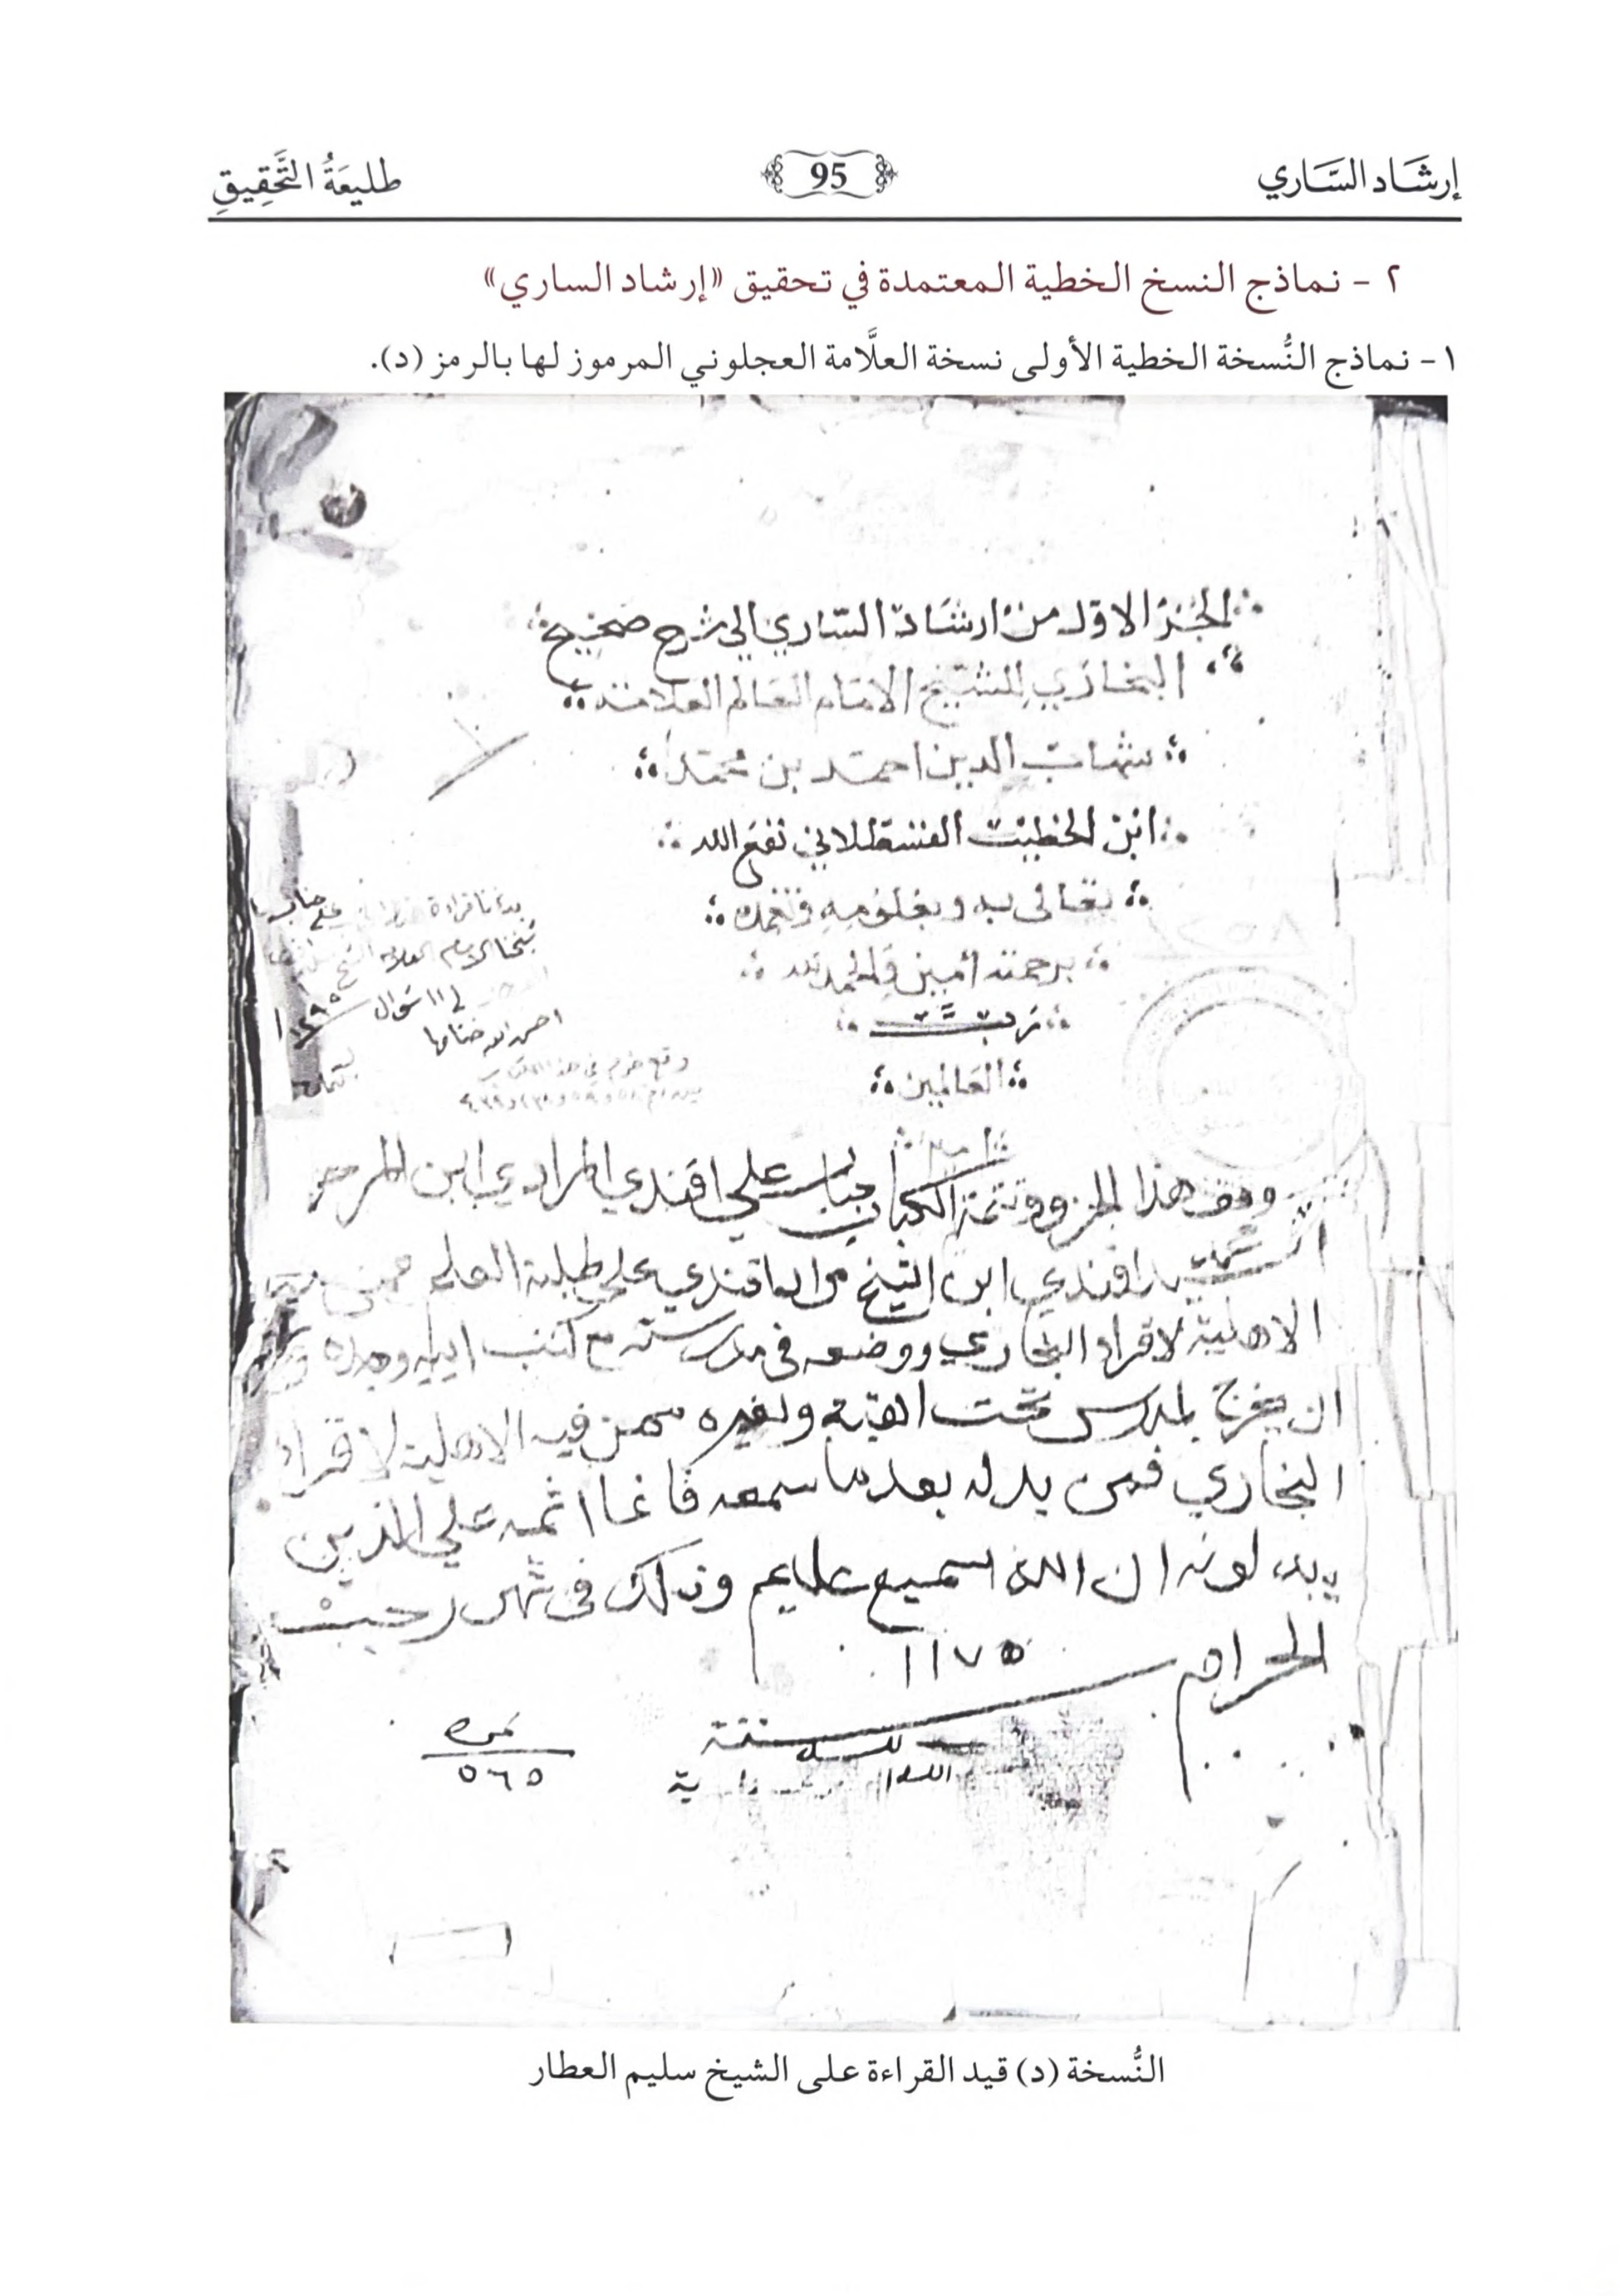 إرشَاد السَّاري
95
طليعَةُ التَّحقِيقِ
٢ - نماذج النسخ الخطية المعتمدة في تحقيق «إرشاد الساري»
١- نماذج النُّسخة الخطية الأولى نسخة العلَّامة العجلوني المرموز لها بالرمز (د).
الجزء الاول من ارشاد الساري الى شرح صحيح
البخاري للشيخ الامام العالم العلامة
شهاب الدين احمد بن محمد
ابن الخطيب القسطلاني نفع الله
تعالى به وبعلومه وتغمده
برحمته امين والحمد لله
رب
العالمين
بدأنا قراءة على جناب
شيخنا الامام العلامة الشيخ
في ١١ شوال
احسن الله ختامها
وقع خرم في هذا الكتاب
وقف هذا الجزء وتتمة الكتاب جناب علي افندي المرادي ابن المرحوم
افندي ابن الشيخ مراد افندي على طلبة العلم ممن فيه
الاهلية لاقراء البخاري ووضعه في مدرسته مع كتب ابيه وجده
ان يخرج لمدرس تحت القبة ولغيره ممن فيه الاهلية لاقراء
البخاري فمن بدله بعد ما سمعه فانما اثمه على الذين
يبدلونه ان الله سميع عليم وذلك في شهر رجب
الحرام
١١٧٥
سنة
نمره
٥٦٥
النُّسخة (د) قيد القراءة على الشيخ سليم العطار